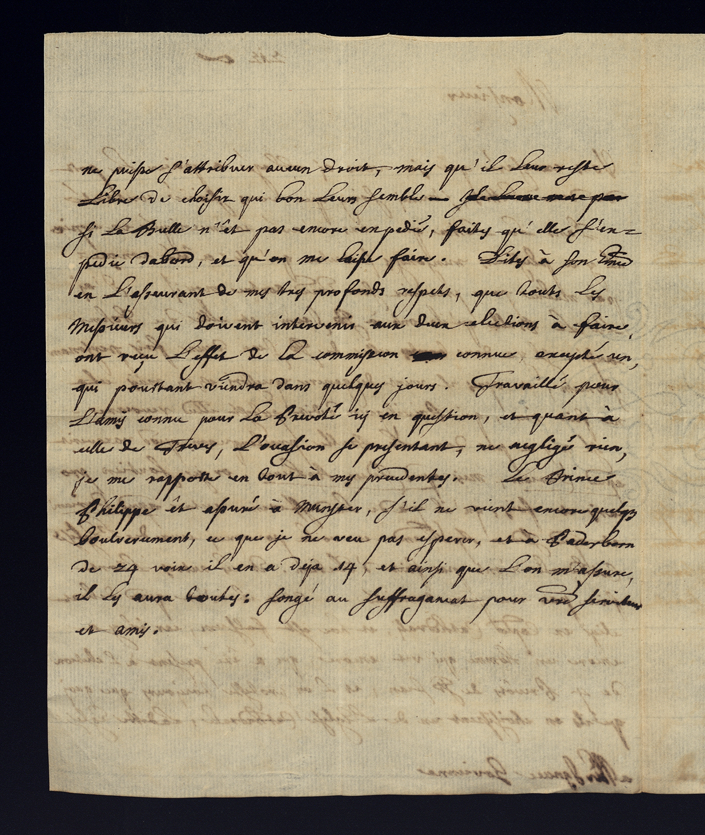 ne puisse s'attribuer aucun droit, mais qu'il leur reste
Libre de choisir qui bon Leur semble
si La Bulle n'êt pas encore enpedié, faites qu'elle s'en=
pedie dabord, et qu'on me laisse faire. Dites à son Emce
en L'asseurant de mes tres profonds respets, que touts Les
Messieurs qui doivent intervenir aux deux elections à faire,
ont reçu L'effet de La commission connue, excepté un,
qui pourtant viendra dans quelques jours. Travaillé pour
L'amis connu pour La Prevoté icy en question, et quant à
celle de Treves, L'ocasion se presentant, ne negligé rien,
je me rapporte en tout à mes precedentes. Le Prince
Philippe êt assuré à Munster, s'il ne vient encore quelq
boulversement, ce que je ne veu pas esperer, et à Paderborn
de 24 voix il en a deja 14, et ainsi que L'on m'assure,
il les aura toutes: songé au suffraganeat pour vre serviteur
et amis.